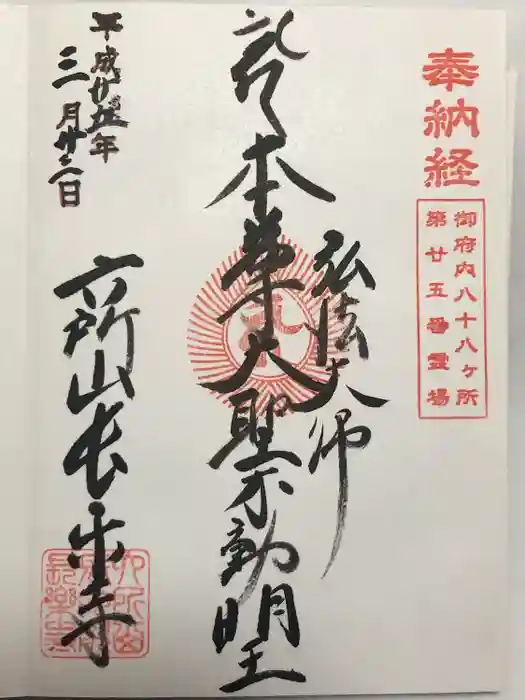 奉納経
御府内八十八ヶ所
第廿五番霊場
弘法大師
本尊大聖不動明王
平成廿五年
三月廿二日
六所山長樂寺
六所山
長樂寺